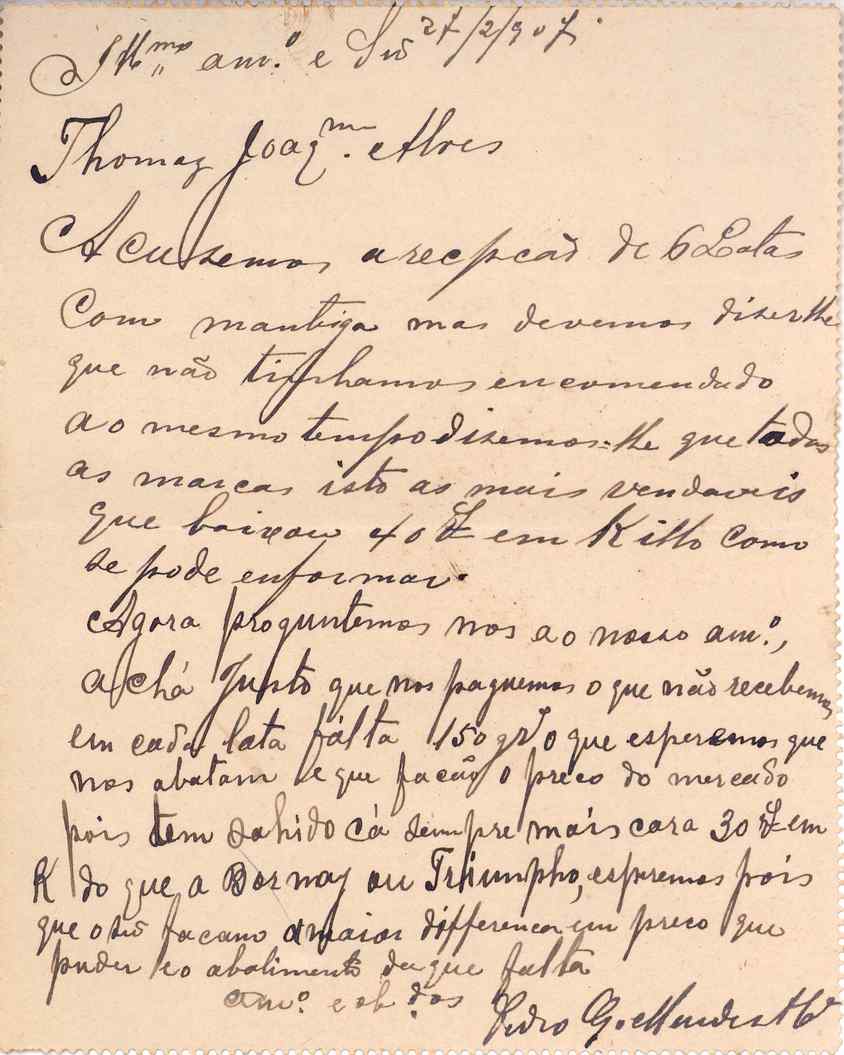 Illmo amº e Snr 27/2/907.
Thomaz Joaqm. Alves
Acuzemos a recpcão de 6 Latas
Com mantiga mas devemos dizerlhe
que não tinhamos encomendado
ao mesmo tempo dizemos-lhe que todas
as marcas isto as mais vendaveis
que baixou 40 em Killo como
se pode enformar.
Agora proguntemos nos ao nosso amº.,
achá Junto que nos paguemos o que não recebemos
em cada lata fálta 150 grs o que esperemos que
nos abatam e que facão o preco do mercado
pois tem sahido cá sempre mais cara 30 em
K do que a Bornay ou Triumpho, esperemos pois
que o facano a maior differenca em preco que
puder e o abatimento da que falta
Amº. e ob.dos
Pedro G. Mendes